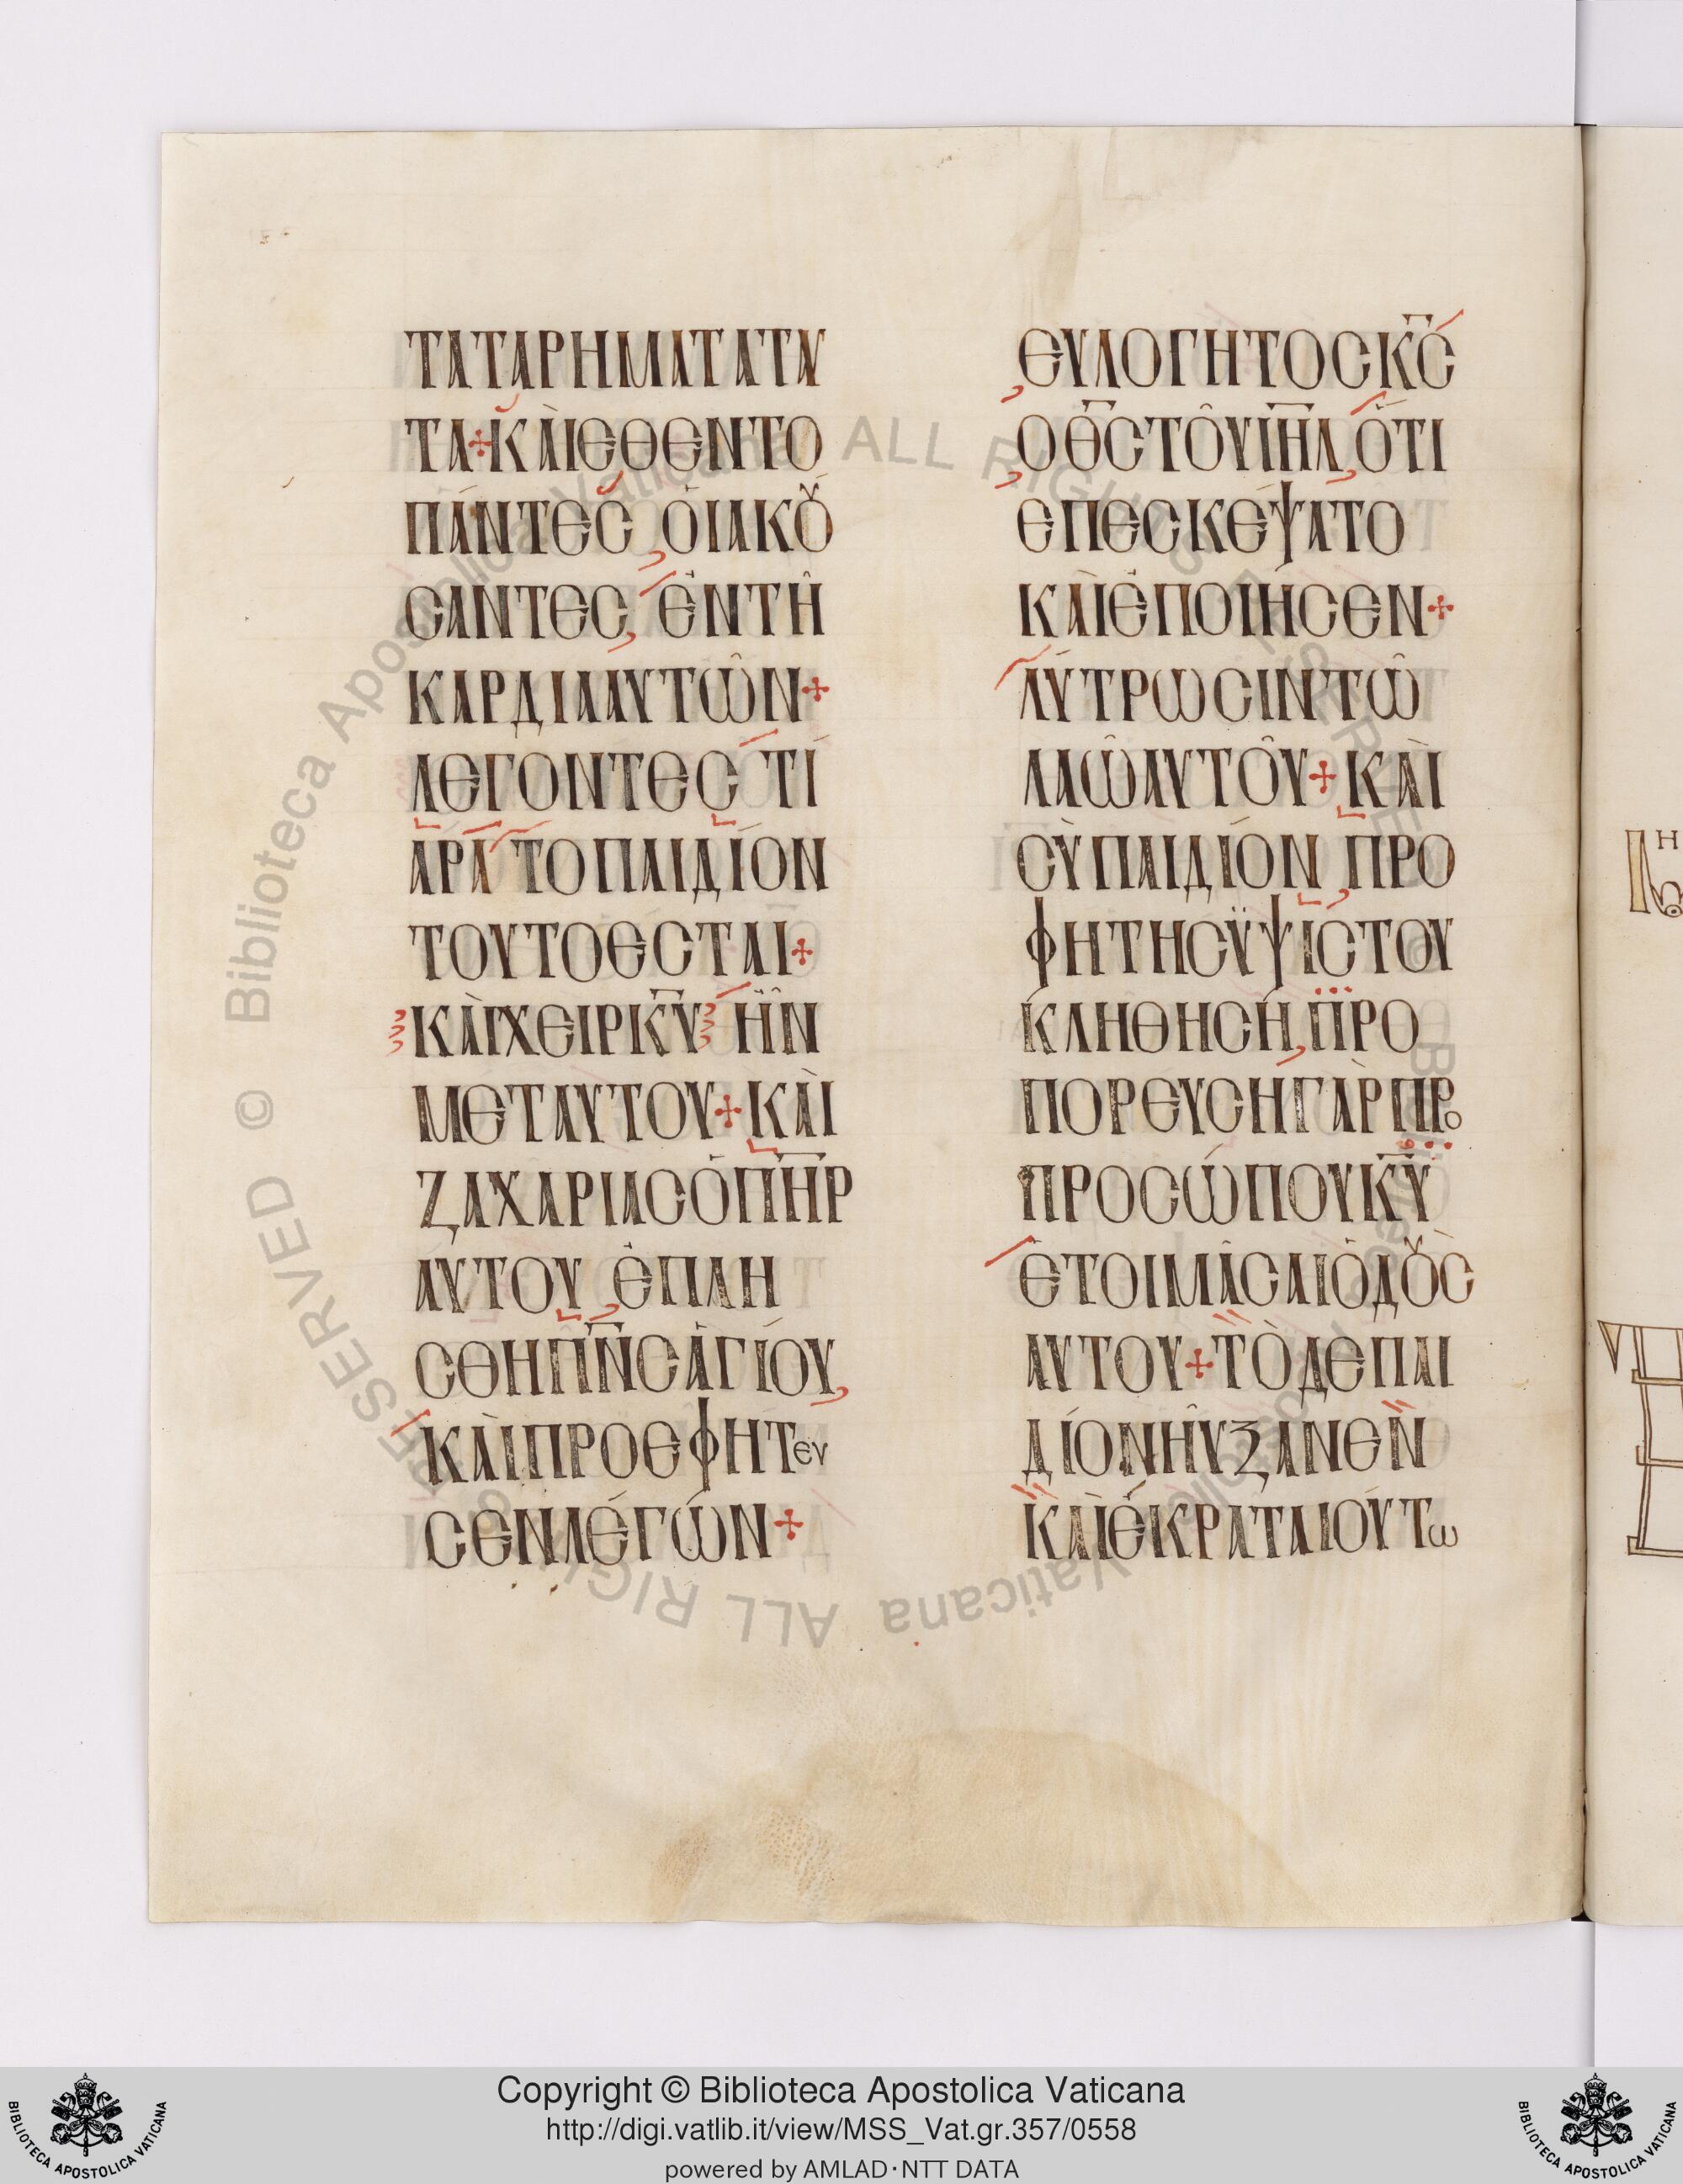 ΤΑΤΑΡΗΜΑΤΑΤΑΥ
ΤΑ+ΚΑῚΕΘΕΝΤΟ
ΠΆΝΤΕС, ὉΙΑΚȢ́
СΑΝΤΕС, ἘΝΤΗ͂
ΚΑΡΔΙΑΑΥΤΩ͂Ν+
ΛΕΓΟΝΤΕС ΤΊ
ἈΡΑ ΤΟΠΑΙΔΊΟΝ
ΤΟΥΤΟΕСΤΑΙ+
ΚΑῚΧΕΙΡΚ̅Υ̅ ἯΝ
ΜΕΤΑΥΤΟΥ+ΚΑῚ
ΖΑΧΑΡΙΑСὉΠ̅Η̅Ρ
ΑΥΤΟΥ, ἘΠΛΗ
СΘΗΠ̅Ν̅СἉΓΊΟΥ,
ΚΑῚΠΡΟΕΦΗΤΕΥ
СΕΝΛΈΓΩΝ+
ΕΥΛΟΓΗΤΟСΚ̅С̅
ΟΘ̅С̅ΤΟΥ͂Ι̅Η̅Λ̅,ὍΤΙ
ΕΠΕСΚΕΨΑΤΟ
ΚΑῚἘΠΟΙΉСΕΝ+
ΛΎΤΡΩСΙΝΤΩ͂
ΛΑΩ͂ΑΥΤΟΥ͂+ΚΑῚ
СῪΠΑΙΔΊΟΝ, ΠΡΟ
ΦΗΤΗСΫΨΊСΤΟΥ
ΚΛΗΘΗСΉ,ΠΡΟ
ΠΟΡΕΎСΗΓᾺΡΠΡΟ
ΠΡΟСΏΠΟΥΚ̅Υ̅
ἙΤΟΙΜΆСΑΙὉΔȢ̀С
ΑΥΤΟΥ+ΤῸΔΕΠΑΙ
ΔΊΟΝΗΎΞΑΝΕΝ
ΚΑῚἘΚΡΑΤΑΙΟΎΤΩ
ALL RIGHTS RESERVED © Biblioteca Apostolica Vaticana
Copyright © Biblioteca Apostolica Vaticana
http://digi.vatlib.it/view/MSS_Vat.gr.357/0558
powered by AMLAD·NTT DATA
BIBLIOTECA APOSTOLICA VATICANA
BIBLIOTECA APOSTOLICA VATICANA